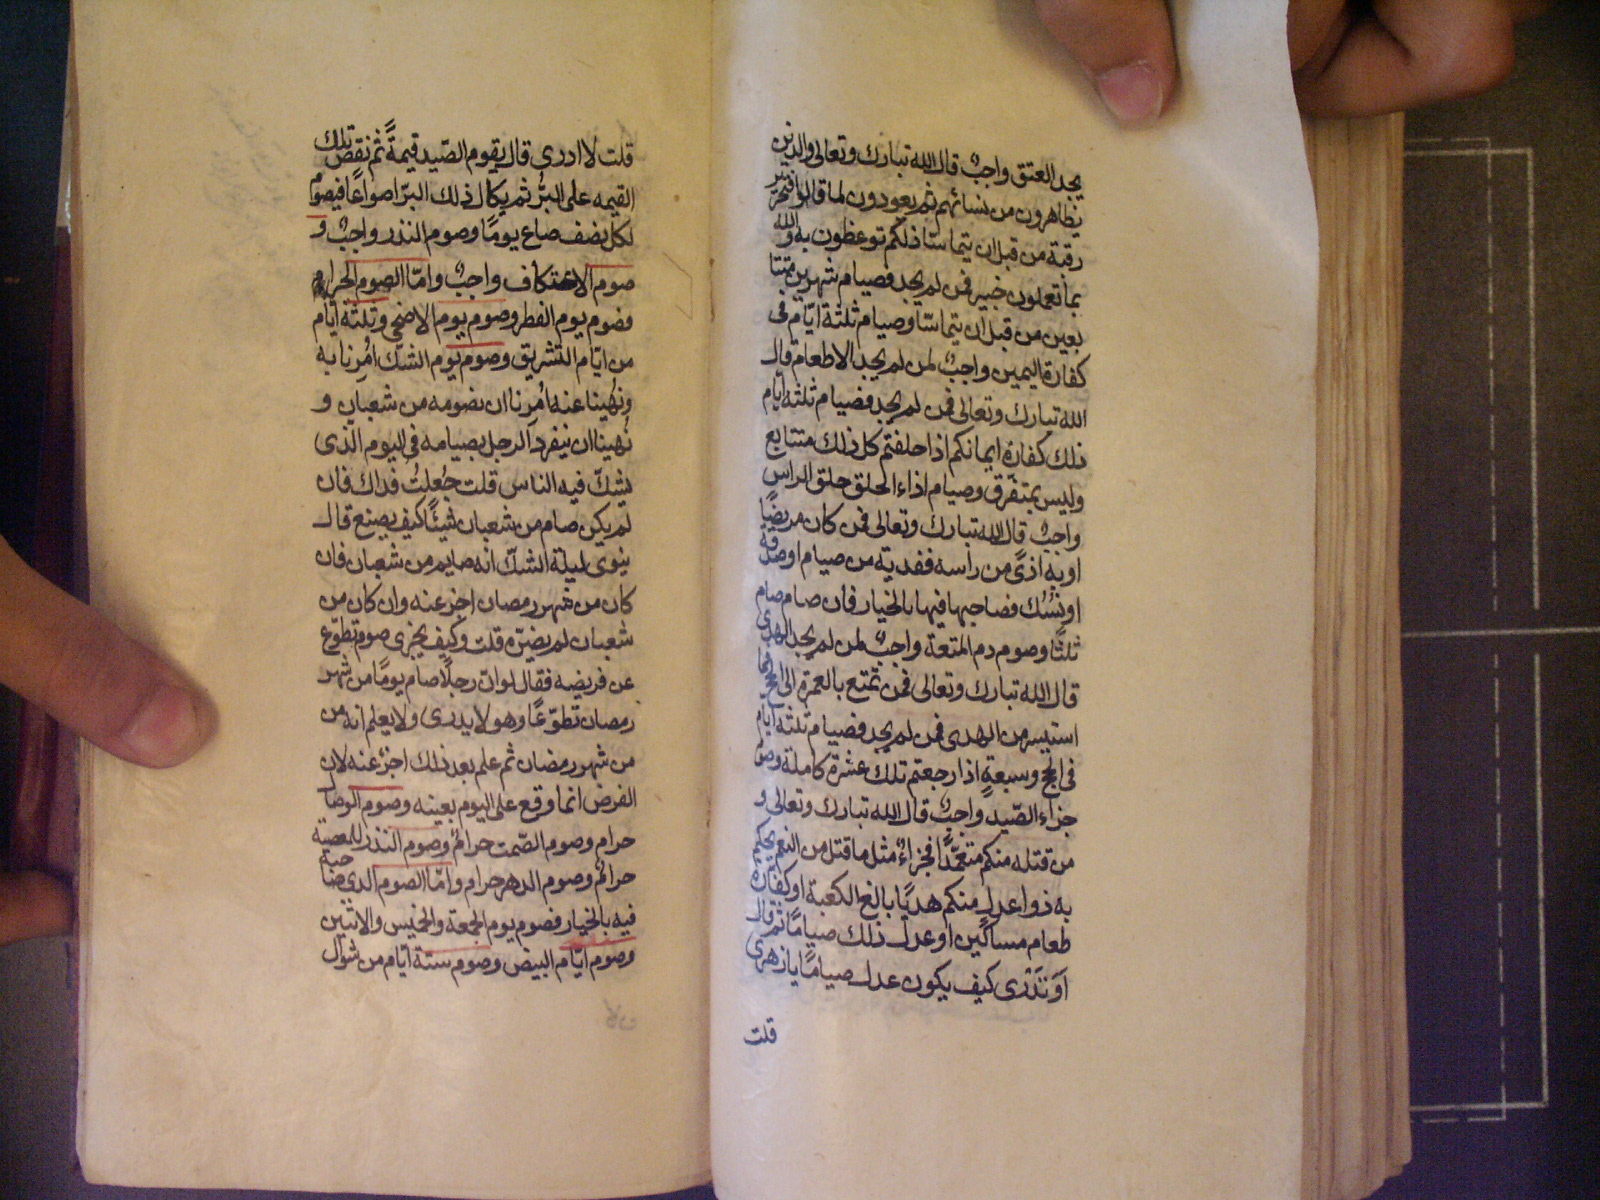 يجد العتق واجبٌ قال الله تبارك وتعالى والذين
يظاهرون من نسائهم ثم يعودون لما قالوا فتحرير
رقبة من قبل ان يتماسّا ذلكم توعظون به والله
بما تعملون خبير فمن لم يجد فصيام شهرين متتا
بعين من قبل ان يتماسّا وصيام ثلثة ايّام فى
كفارة اليمين واجبٌ لمن لم يجد الاطعام قال
الله تبارك وتعالى فمن لم يجد فصيام ثلثه ايام
ذلك كفارة ايمانكم اذا حلفتم كل ذلك متتابع
وليس بمتفّرق وصيام اذاء الحلق حلق الراس
واجبٌ قال الله تبارك وتعالى فمن كان مريضًا
او به اذىً من رأسه ففدية من صيام او صدقة
او نسُك فصاحبها فيها بالخيار فان صام صام
ثلثًا وصوم دم المتعة واجبٌ لمن لم يجد الهدى
قال الله تبارك وتعالى فمن تمتع بالعمرة الى الحج فما
استيسر من الهدى فمن لم يجد فصيام ثلثه ايام
فى الحج وسبعةٍ اذا رجعتم تلك عشرة كاملة وصو
جزاء الصّيد واجبٌ قال الله تبارك وتعالى و
من قتله منكم متعمّدًا فجزاءٌ مثل ما قتل من النعم يحكم
به ذوا عدل منكم هديًا بالغ الكعبة او كفارة
طعام مساكين او عدل ذلك صيامًا ثم قال
اَوَتَدْرى كيف يكون عدل صيامًا يا زهرى
قلت
قلت لا ادرى قال يقوم الصّيد قيمةً ثم نقض تلك
القيمه على البرُّ ثم يكال ذلك البرّ اصواعًا فيصوم
لكل نصف صاع يومًا وصوم النذر واجبٌ و
صوم الاعتكاف واجبٌ وامّا الصوم الحرام
فصوم يوم الفطر وصوم يوم الاضحى وثلثة ايّام
من ايّام التشريق وصوم يوم الشكّ اُمِرنا به
ونُهينا عنه اُمِرنا ان نصومه من شعبان و
نُهينا ان ينفرد الرجل بصيامه فى اليوم الذى
يشكّ فيه الناس قلت جُعلتُ فداك فان
لم يكن صام من شعبان شيئًا كيف يصنع قال
ينوى ليلة الشكّ انه صايم من شعبان فان
كان من شهر رمضان اجز عنه وان كان من
شعبان لم يضرّه قلت وكيف يجزى صوم تطوّع
عن فريضه فقال لوانّ رجلًا صام يومًا من شهر
رمضان تطوّعًا وهو لا يدرى ولا يعلم انه من
من شهر رمضان ثم علم بعد ذلك اجزء عنه لان
الفرض انما وقع على اليوم بعينه وصوم الوصال
حرام وصوم الصّمت حرامٌ وصوم النذر للمعصية
حرامٌ وصوم الدهر حرام وامّا الصوم الذى صاحبه
فيه بالخيار فصوم يوم الجمعة والخميس والاثنين
وصوم ايّام البيض وصوم ستة ايّام من شوال